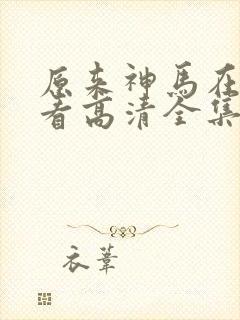 原来神马在
看高清全集
衣苇